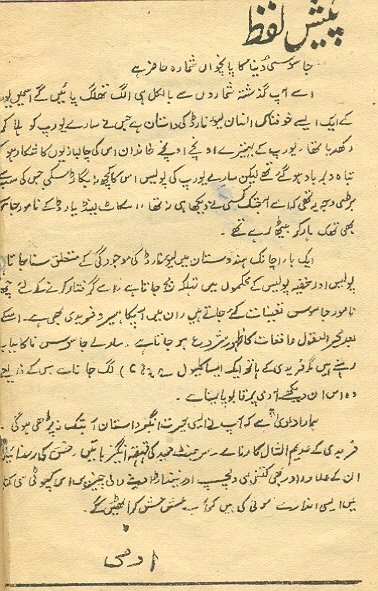 پیش لفظ
جاسوسی دنیا کا پانچواں شمارہ حاضر ہے
اسے آپ گذشتہ شماروں سے بالکل ہی الگ تھلگ پائیں گے اسمیں یورپ
کے ایک ایسے خوفناک انسان لیونارڈ کی داستان ہے جس نے سارے یورپ کو ہلا کر
رکھدیا تھا۔ یورپ کے بہتیرے اونچے اونچے خاندان اس کی چالبازیوں کا شکار ہو کر
تباہ و برباد ہو گئے تھے لیکن سارے یورپ کی پولیس اس کا کچھ نہ بگاڑ سکی جس کی سب سے
بڑی وجہ یہ تھی کہ اسے آجتک کسی نے دیکھا ہی نہ تھا۔ اسکاٹ لینڈ یارڈ کے نامور جاسوس
بھی تھک ہار کر بیٹھ رہے تھے۔
ایک بار اچانک ہندوستان میں لیونارڈ کی موجودگی کے متعلق سنا جاتا ہے
پولیس اور خفیہ پولیس کے محکموں میں تہلکہ مچ جاتا ہے۔ اسے گرفتار کرنے کے لئے چھ
نامور جاسوس تعینات کئے جاتے ہیں۔ ان میں آپکا ہیرو فریدی بھی ہے۔ اسکے
بعد محیر العقول واقعات کا ظہور شروع ہو جاتا ہے۔ سارے جاسوس ناکامیاب
رہتے ہیں مگر فریدی کے ہاتھ ایک ایسا کلیو لگ جاتا ہے جس کے ذریعے
وہ اس ان دیکھے آدمی پر قابو پا لیتا ہے۔
ہمارا دعویٰ ہے کہ آپ نے ایسی حیرت انگیز داستان آجتک نہ پڑھی ہوگی۔
فریدی کے عدیم المثال کارنامے۔ سرجنٹ حمید کی قہقہہ انگیز باتیں۔ حسن کی رعنائیاں
ان کے علاوہ اور جتنی کتنی ہی دلچسپ اور چیزیں اس چھوٹی سی کتاب
میں ایسی انداز سے سموئی گئی ہیں کہ آپ عش عش کر اٹھیں گے۔